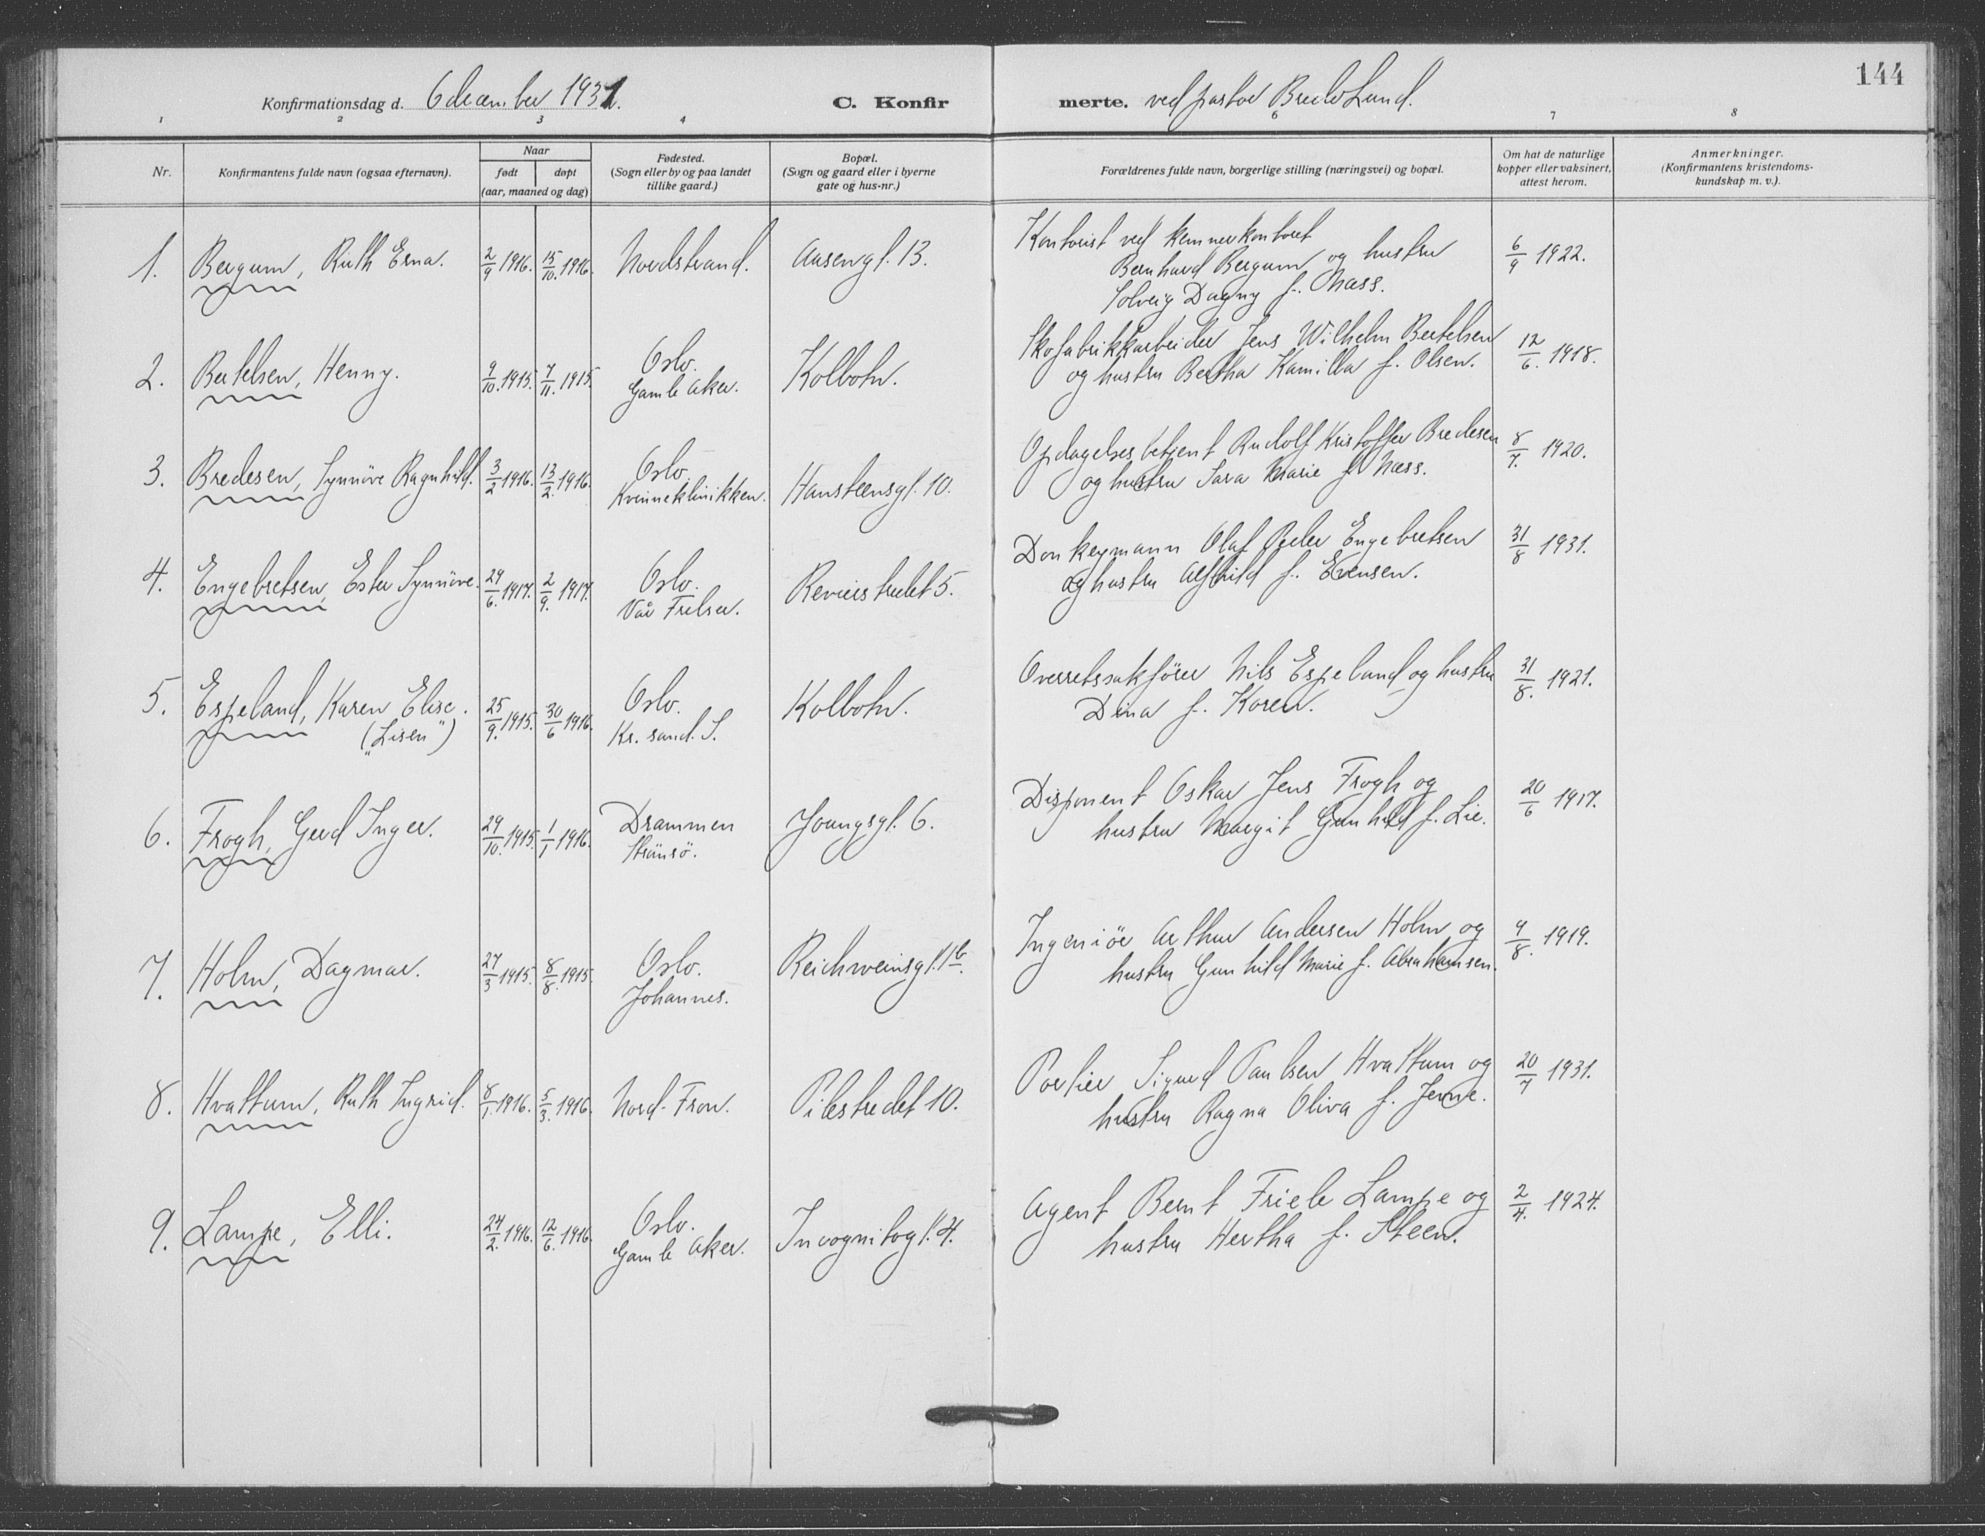 144
Konfirmationsdag d. 6 december 1931. C. Konfir merte. ved pastor Bredo Lund.
1 2 3 4 6 7 8
Nr. Konfirmantens fulde navn (ogsaa efternavn).
Naar
født døpt
(aar, maaned og dag)
Fødested.
(Sogn eller by og paa landet
tillike gaard.)
Bopæl.
(Sogn og gaard eller i byerne
gate og hus-nr.)
Forældrenes fulde navn, borgerlige stilling (næringsvei) og bopæl.
Om hat de naturlige
kopper eller vaksinert,
attest herom.
Anmerkninger.
(Konfirmantens kristendoms-
kundskap m. v.).
1. Bergum, Ruth Erna. 2/9 1916. 15/10. 1916. Nordstrand. Aasengt. 13.
Kontorist ved kemnerkontoret
Bernhard Bergum og hustru
Solveig Dagny f. Næss.
6/9 1922.
2. Bertelsen, Henny. 9/10. 1915. 7/11. 1915. Oslo.
Gamle Aker.
Kolbotn.
Skofabrikkarbeider Jens Wilhelm Bertelsen
og hustru Bertha Kamilla f. Olsen.
12/6. 1918.
3. Bredesen, Synnöve Ragnhild. 3/2 1916. 13/2. 1916. Oslo.
Kvinneklinikken.
Hansteensgt. 10.
Opdagelsesbetjent Rudolf Kristoffer Bredesen
og hustru Sara Marie f. Næss.
8/7. 1920.
4. Engebretsen, Ester Synnöve. 24/6. 1917. 2/9. 1917. Oslo.
Vår Frelser.
Revierstredet 5.
Donkeymann Olaf Peder Engebretsen
og hustru Alfhild f. Evensen.
31/8 1931.
5. Espeland, Karen Elise.
("Lisen")
25/9. 1915. 30/6 1916. Oslo.
Kr. sand. S.
Kolbotn.
Overretssakförer Nils Espeland og hustru
Dina f. Koren.
31/8. 1921.
6. Frogh, Gerd Inger. 29/10. 1915. 1/1 1916. Drammen
Strömsö.
Youngsgt. 6.
Disponent Oskar Jens Frogh og
hustru Margit Gunhild f. Lie.
20/6 1917.
7. Holm, Dagmar. 27/3 1915. 8/8. 1915. Oslo.
Johannes.
Reichweinsgt. 1b.
Ingeniör Arthur Andersen Holm og
hustru Gunhild Marie f. Abrahamsen.
9/8. 1919.
8. Hvattum, Ruth Ingrid. 8/1. 1916. 5/3. 1916. Nord-Fron. Pilestredet 10.
Portier Sigurd Paulsen Hvattum og
hustru Ragna Oliva f. Jerne.
20/7 1931.
9. Lampe, Elli. 24/2. 1916. 12/6. 1916. Oslo.
Gamle Aker.
Incognitogt. 4.
Agent Bernt Friele Lampe og
hustru Hertha f. Steen.
2/4. 1924.